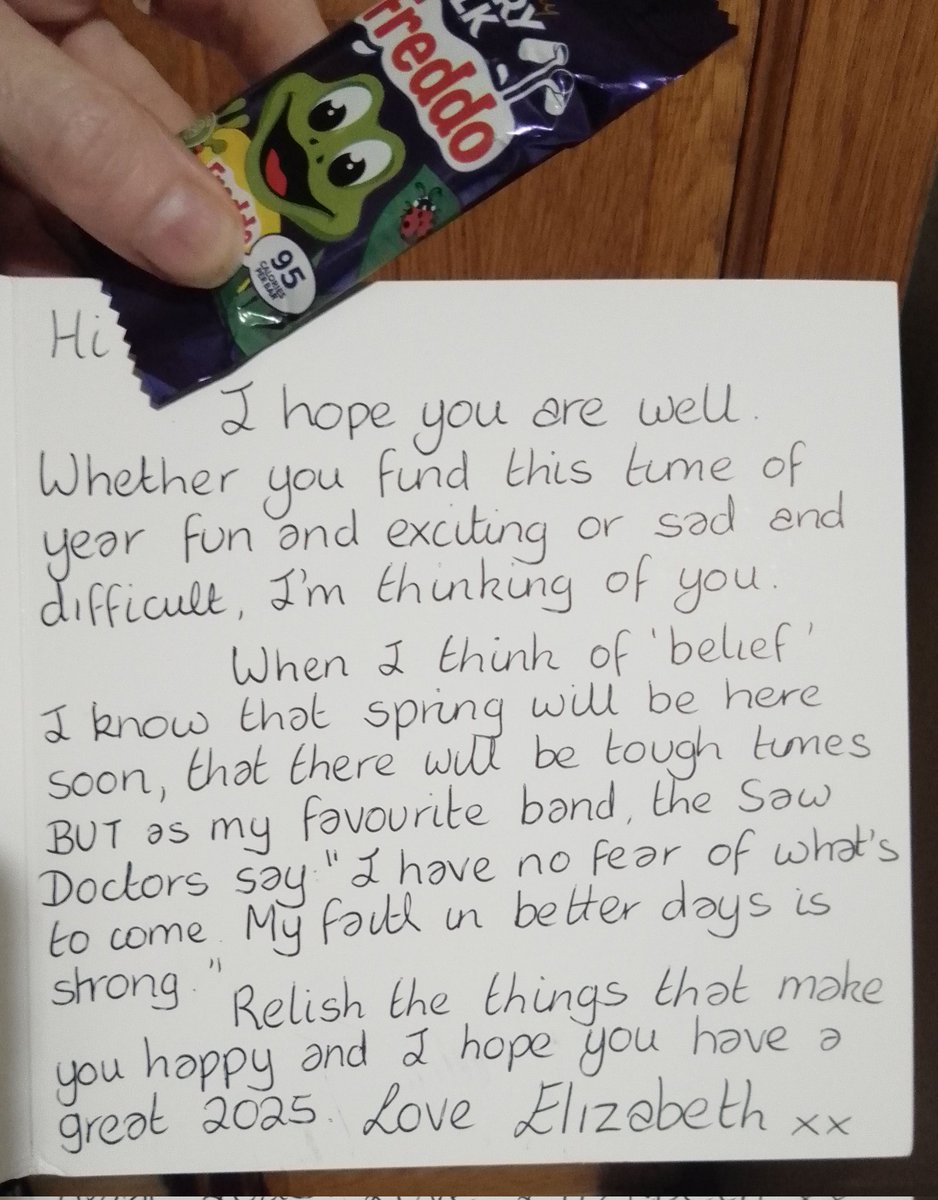 Freddo
RY
LK
Freddo
95
CALORIES
PER BAR
Hi
I hope you are well.
Whether you find this time of
year fun and exciting or sad and
difficult, I'm thinking of you.
When I think of 'belief'
I know that spring will be here
soon, that there will be tough times
BUT as my favourite band, the Saw
Doctors say "I have no fear of what's
to come. My faith in better days is
strong."
Relish the things that make
you happy and I hope you have a
great 2025. Love Elizabeth xx